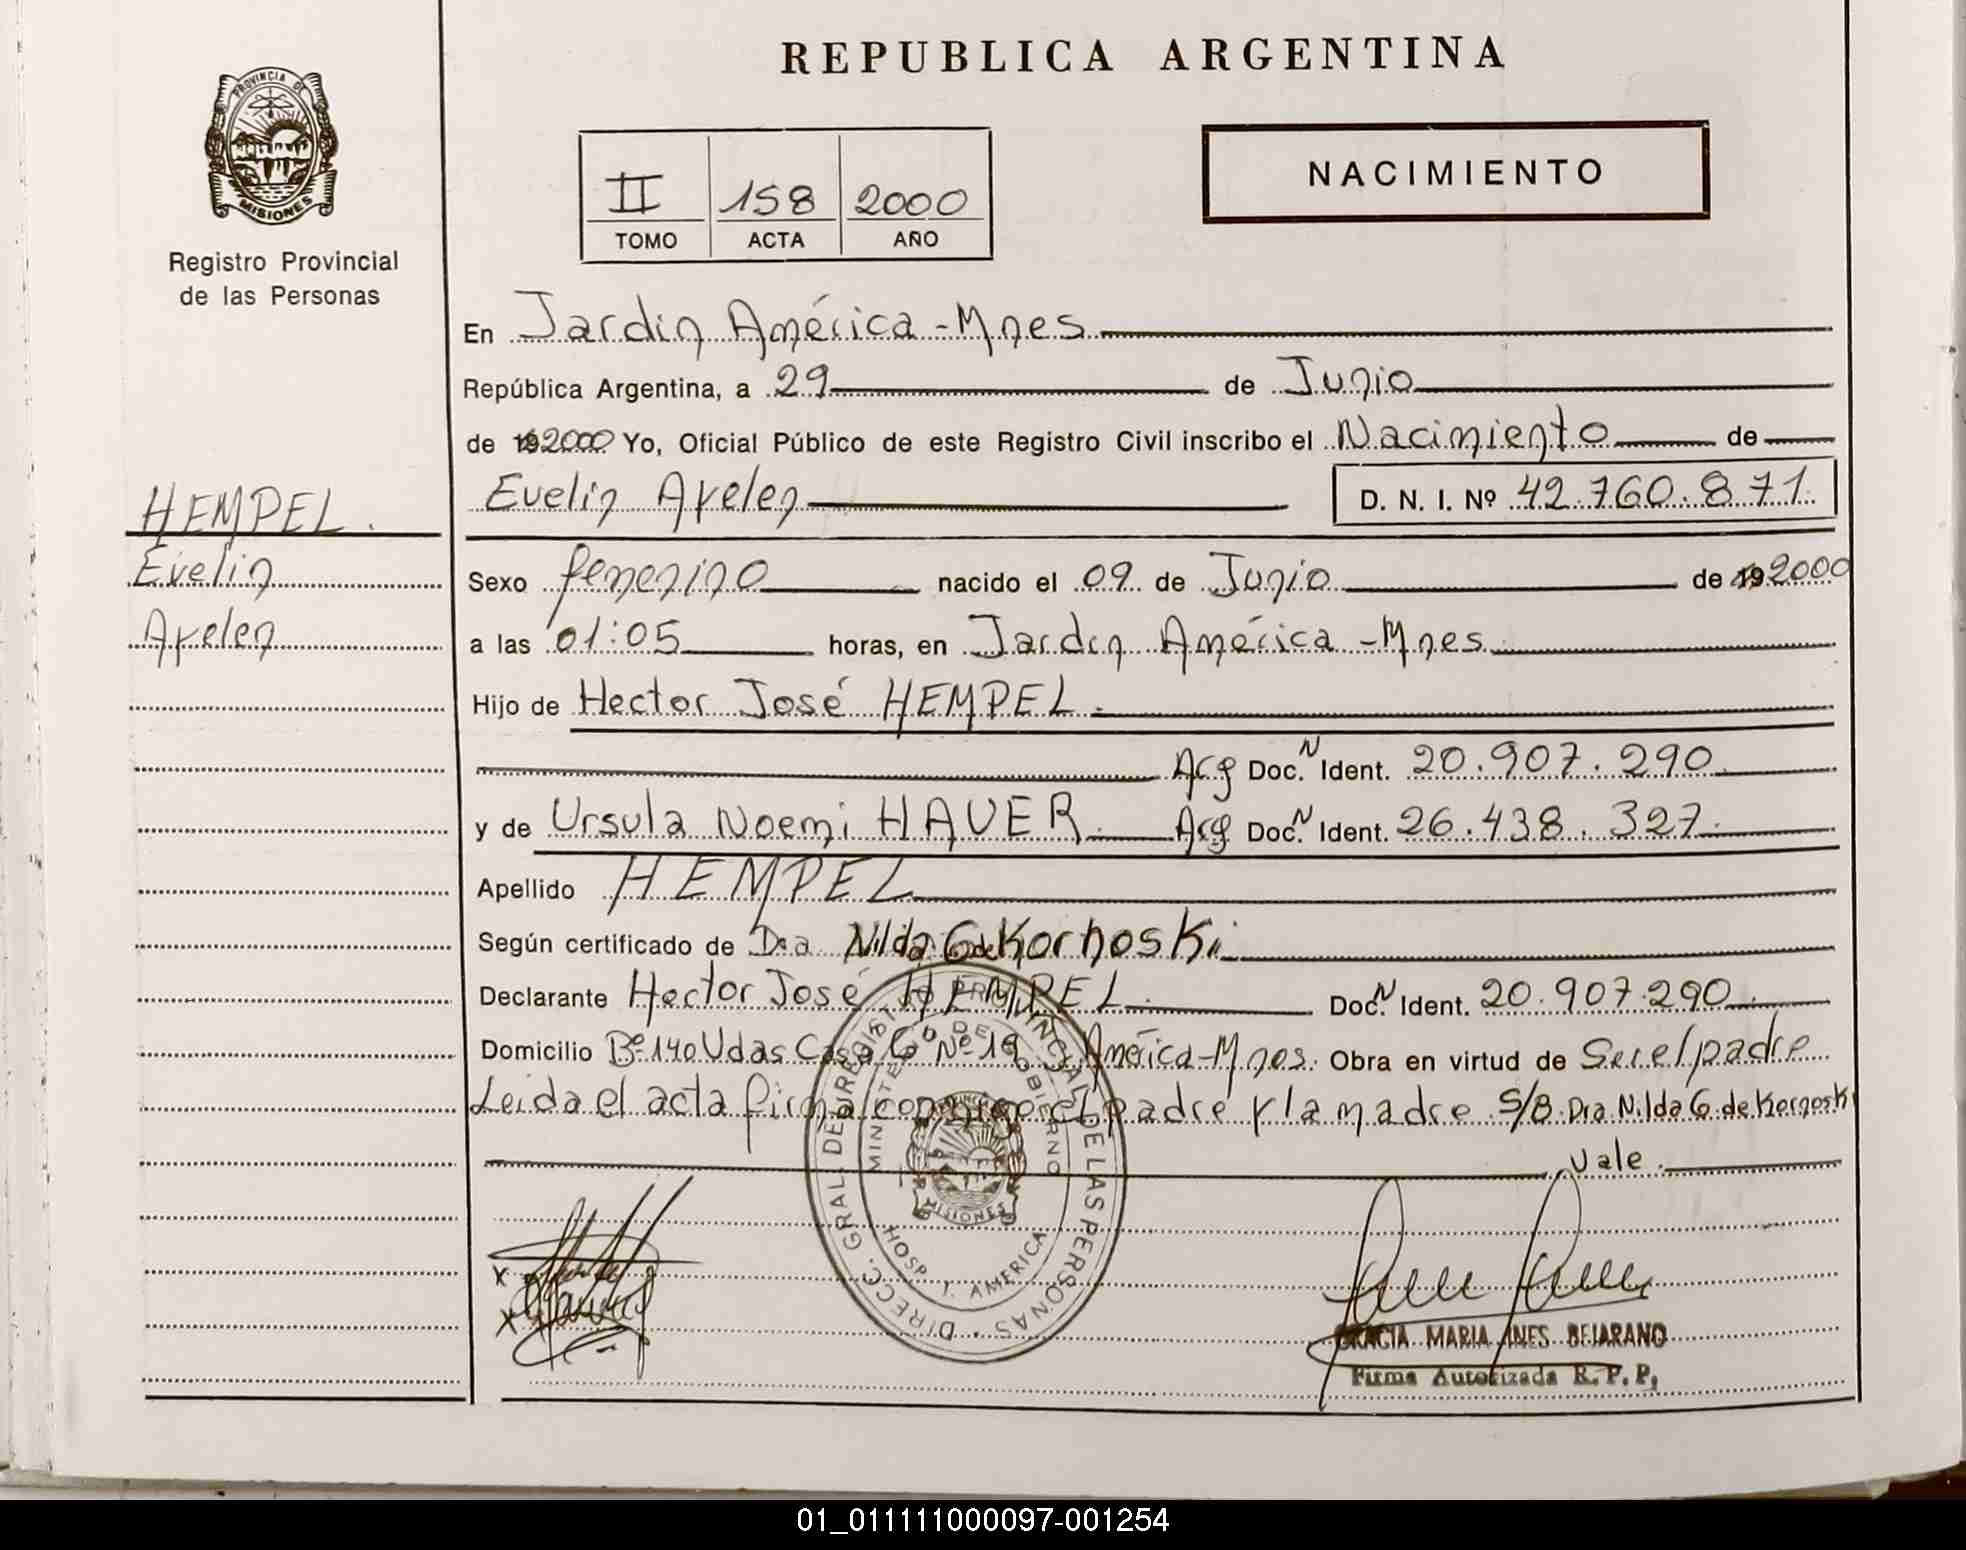 REPUBLICA ARGENTINA
PROVINCIA DE
MISIONES
Registro Provincial
de las Personas
II 158 2000
TOMO ACTA AÑO
NACIMIENTO
En Jardin América - Mnes
República Argentina, a 29 de Junio
de 19 2000 Yo, Oficial Público de este Registro Civil inscribo el Nacimiento de
Evelin Ayelen D. N. I. Nº 42.760.871
HEMPEL.
Evelin
Ayelen
Sexo femenino nacido el 09 de Junio de 19 2000
a las 01:05 horas, en Jardin América - Mnes
Hijo de Hector José HEMPEL.
Arg Doc. N Ident. 20.907.290
y de Ursula Noemi HAUER. Arg Doc. N Ident. 26.438.327.
Apellido HEMPEL
Según certificado de Dra Nilda G de Kornoski
Declarante Hector José HEMPEL. Doc. N Ident. 20.907.290
Domicilio Bº 140 Vdas Casa Nº 19 J. América - Mnes. Obra en virtud de Ser el padre
Leida el acta firma conmigo el padre y la madre S/B. Dra. Nilda G. de Kornoski
Vale.
DIRECC. GRAL. DE REGIST PROVINCIAL DE LAS PERSONAS
MINISTERIO DE GOBIERNO
MISIONES
HOSP. J. AMERICA
x
x
GRACIA MARIA INES BEJARANO
Firma Autorizada R. P. P.
01_011111000097-001254